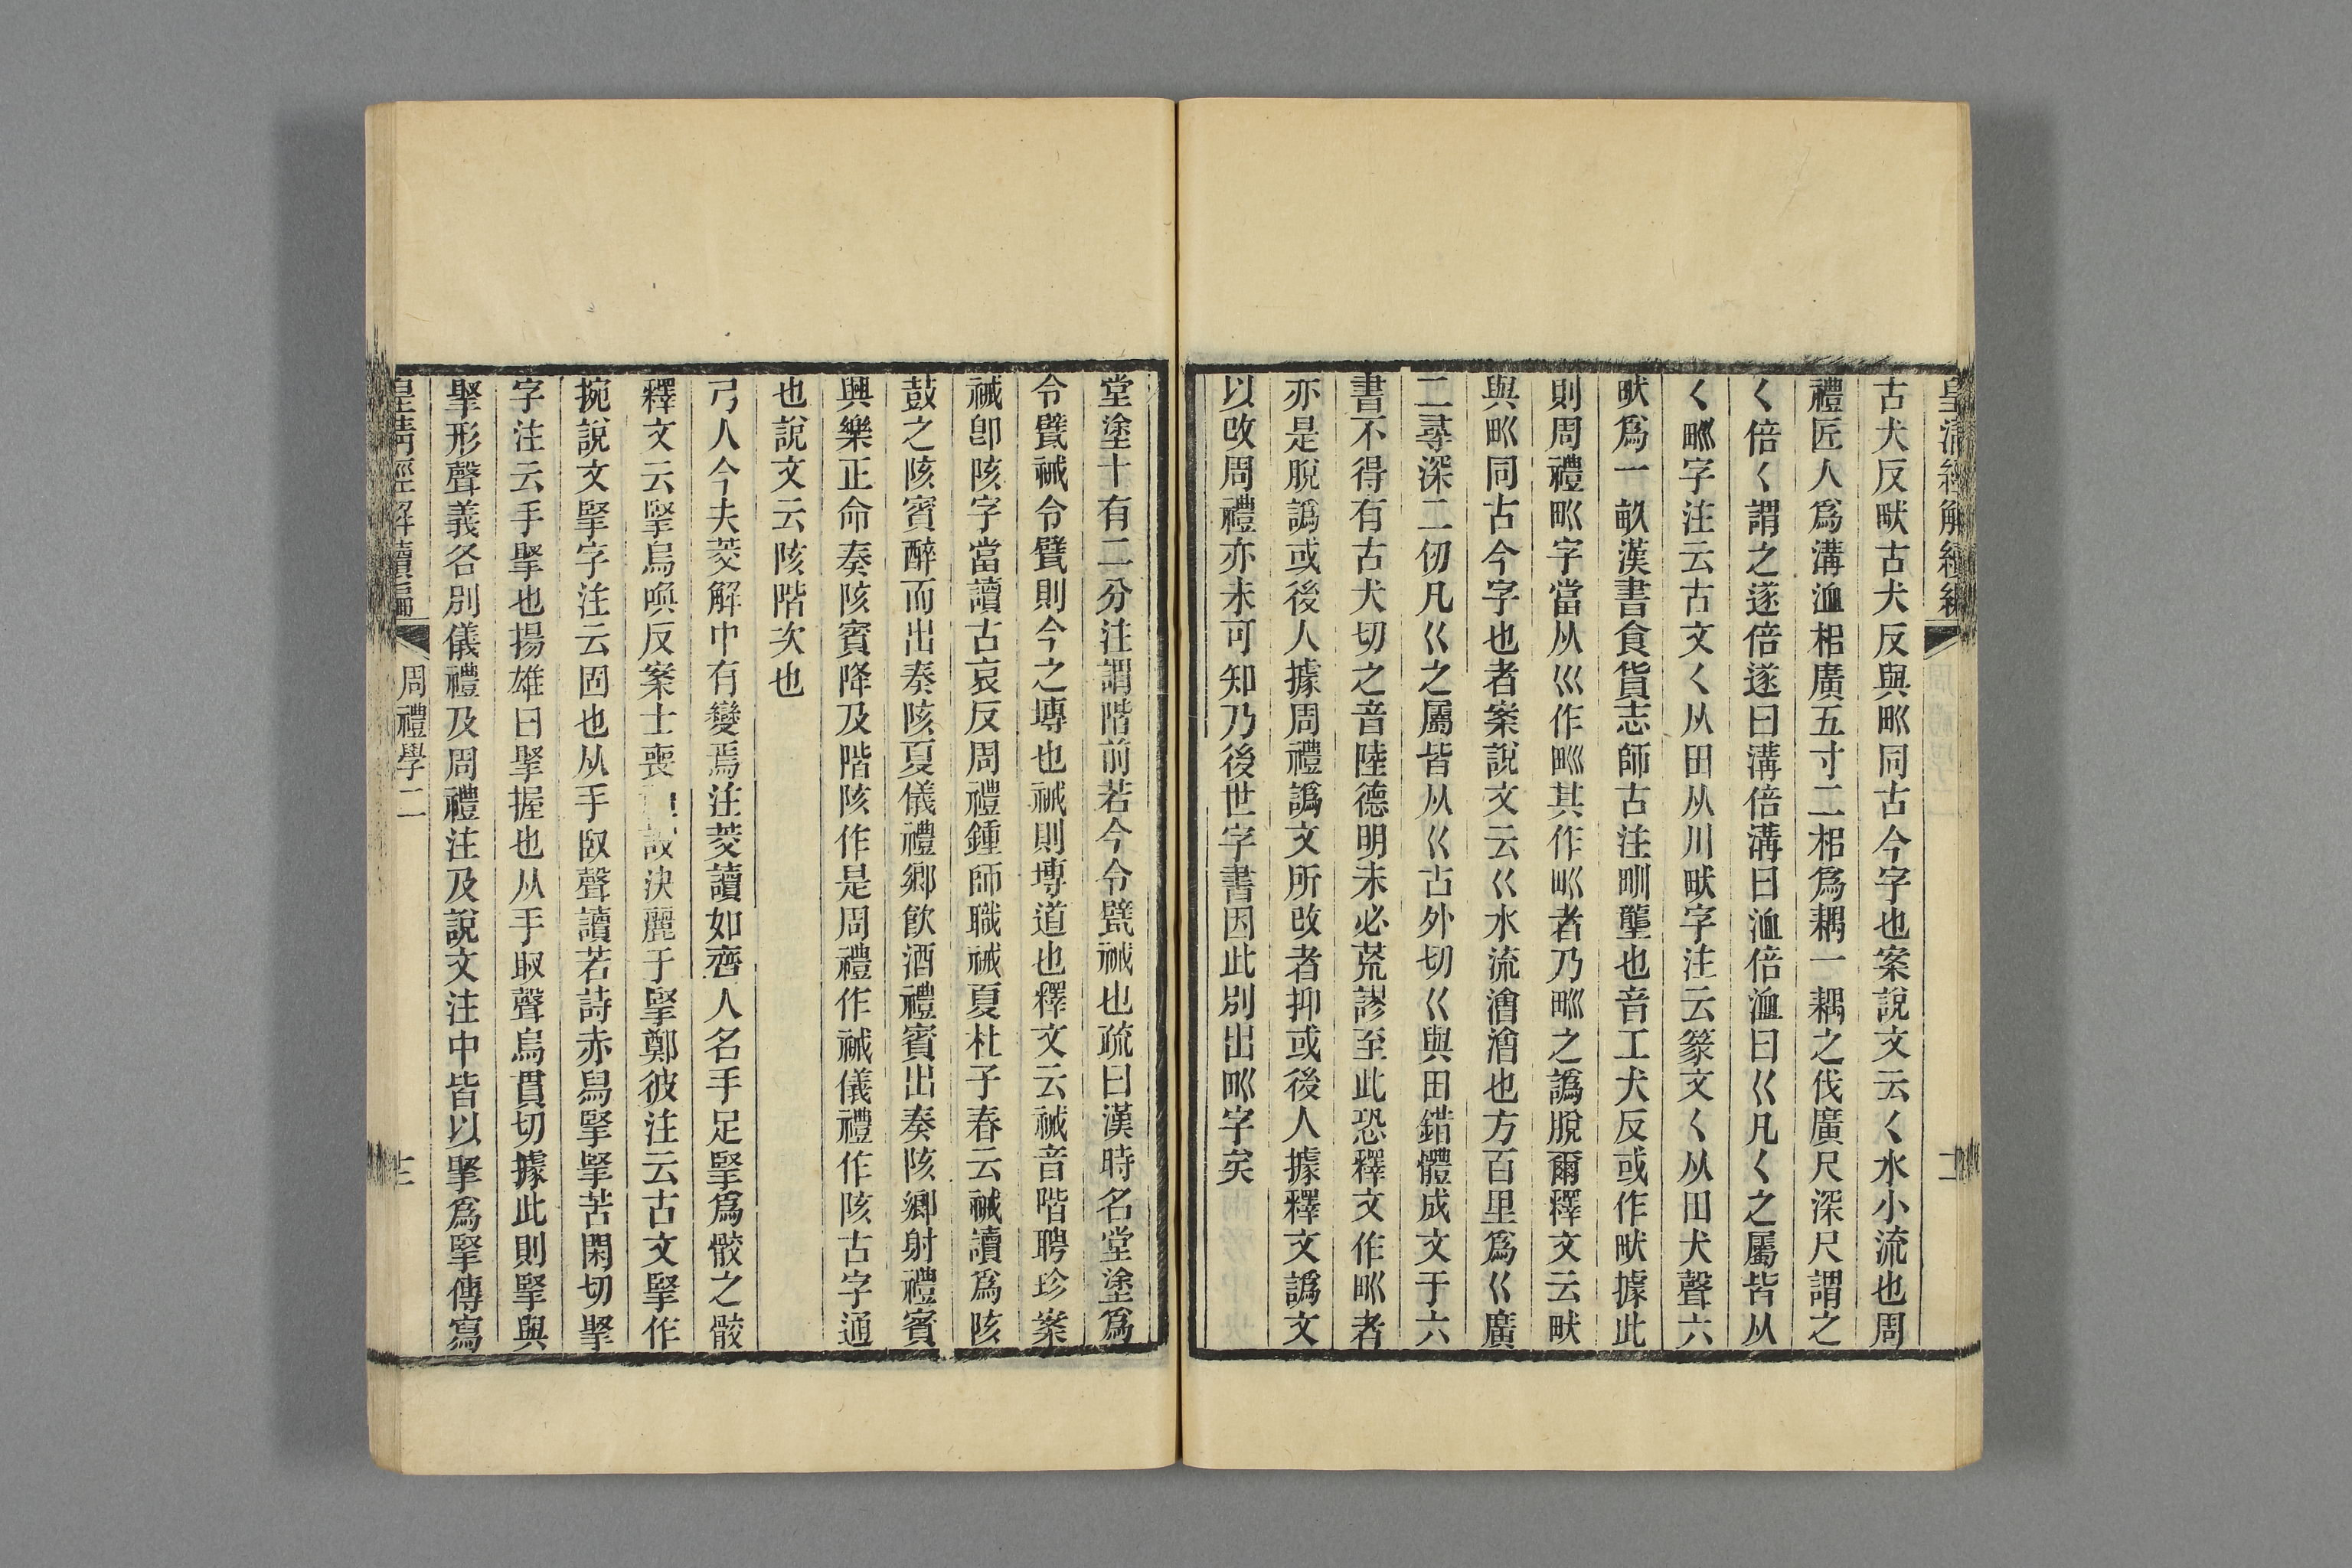 古犬反畎古犬反與𤰕同古今字也案說文云𡿨水小流也周
禮匠人爲溝洫枱廣五寸二枱爲耦一耦之伐廣尺深尺謂之
𡿨倍𡿨謂之遂倍遂曰溝倍溝曰洫倍洫曰巜凡𡿨之屬皆从
𡿨甽字注云古文𡿨从田从川畎字注云篆文𡿨从田犬聲六
畎爲一畝漢書食貨志師古注甽壟也音工犬反或作畎據此
則周禮𤰕字當从巛作甽其作𤰕者乃甽之譌脫爾釋文云畎
與𤰕同古今字也者案說文云巜水流澮澮也方百里爲巜廣
二尋深二仞凡巜之屬皆从巜古外切巜與田錯體成文于六
書不得有古犬切之音陸德明未必荒謬至此恐釋文作𤰕者
亦是脫譌或後人據周禮譌文所改者抑或後人據釋文譌文
以改周禮亦未可知乃後世字書因此別出𤰕字矣
堂塗十有二分注謂階前若今令甓祴也疏曰漢時名堂塗爲
令甓祴令甓則今之塼也祴則塼道也釋文云祴音階聘珍案
祴卽陔字當讀古哀反周禮鍾師職祴夏杜子春云祴讀爲陔
鼓之陔賓醉而出奏陔夏儀禮鄉飮酒禮賓出奏陔鄉射禮賓
興樂正命奏陔賓降及階陔作是周禮作祴儀禮作陔古字通
也說文云陔階次也
弓人今夫茭解中有變焉注茭讀如齊人名手足掔爲骹之骹
釋文云掔烏喚反案士喪設決麗于掔鄭彼注云古文掔作
捥說文掔字注云固也从手臤聲讀若詩赤舄掔掔苦閑切掔
字注云手掔也揚雄曰掔握也从手取聲烏貫切據此則掔與
掔形聲義各別儀禮及周禮注及說文注中皆以掔爲掔傳寫
皇清經解續編 周禮學二 十二